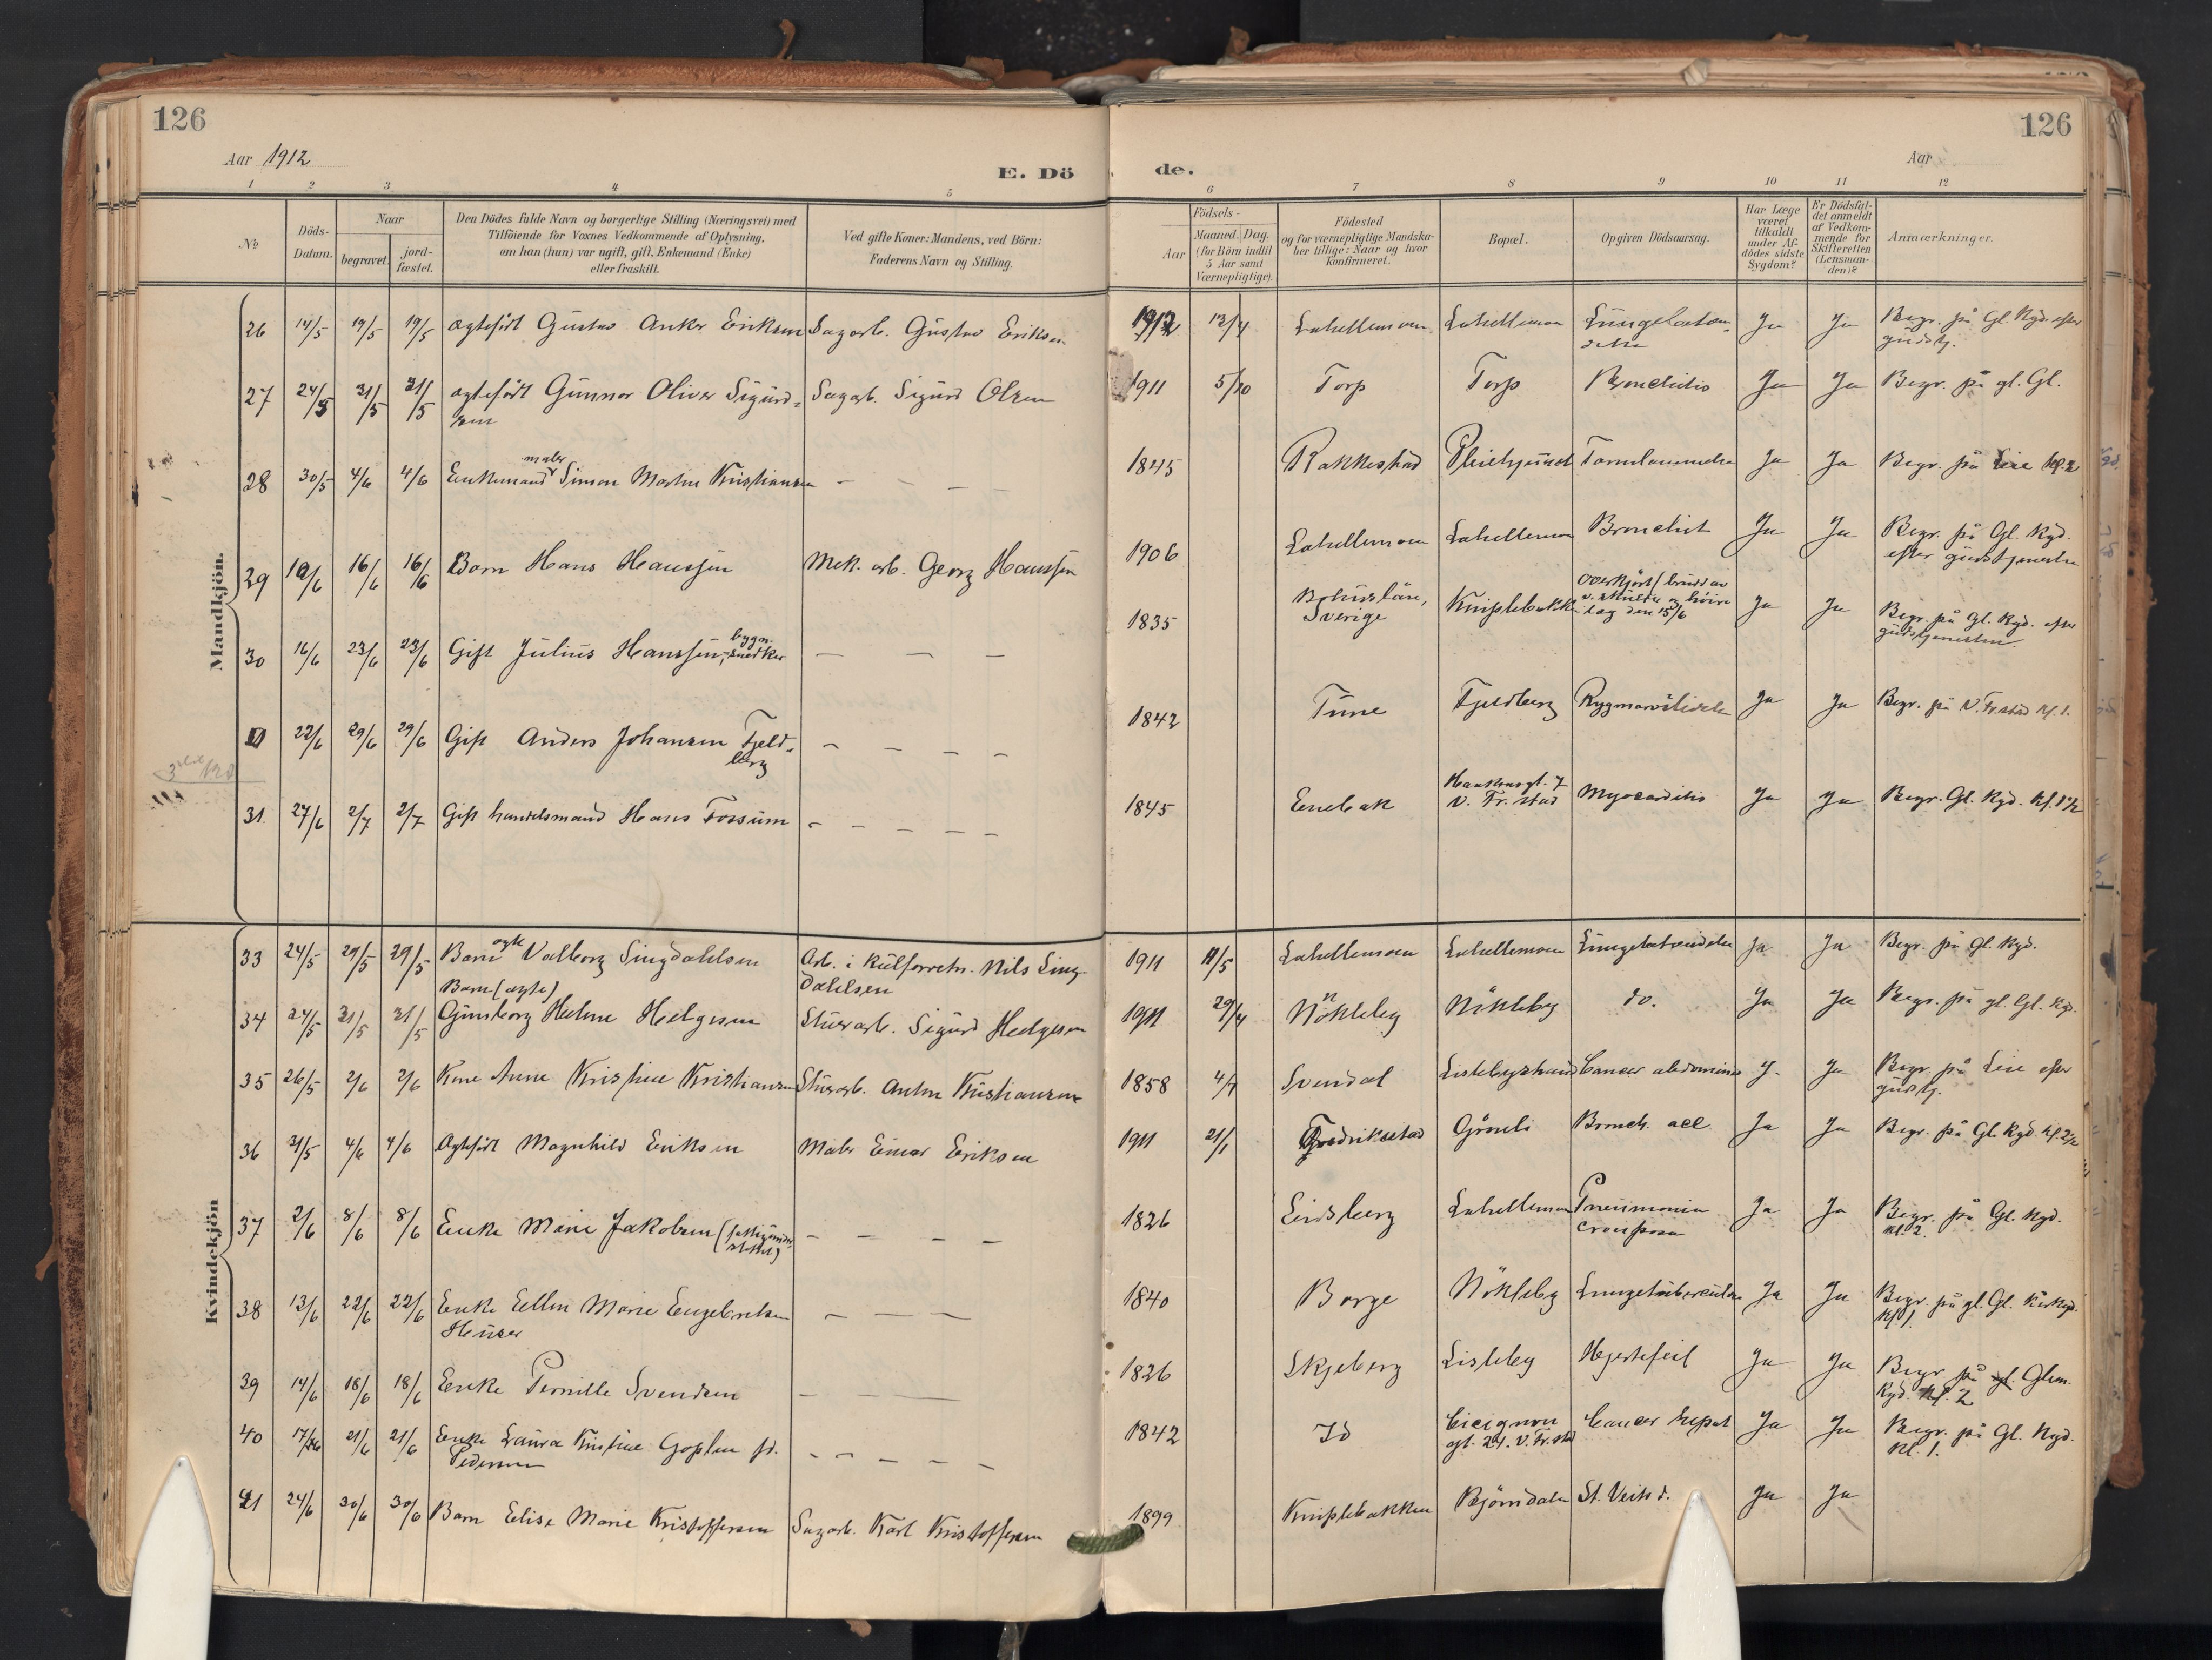 126
126
Aar 1912
E. Dö de.
Aar
1 2 3 4 5 6 7 8 9 10 11 12
No
Döds-Datum.
Naar
begravet.
jord-fæstet.
Den Dödes fulde Navn og borgerlige Stilling (Næringsvei) med
Tilföiende for Voxnes Vedkommende af Oplysning,
om han (hun) var ugift, gift, Enkemand (Enke)
eller fraskilt.
Ved gifte Koner: Mandens, ved Börn:
Faderens Navn og Stilling.
Födsels-
Aar
Maaned. Dag.
(for Börn indtil
5 Aar samt
Værnepligtige).
Födested
og for værnepligtige Mandska-
ber tillige: Naar og hvor
konfirmeret.
Bopæl.
Opgiven Dödsaarsag.
Har Læge
været
tilkaldt
under Af-
dödes sidste
Sygdom?
Er Dödsfal-
det anmeldt
af Vedkom-
mende for
Skifteretten
(Lensman-
den)?
Anmærkninger.
Mandkjön.
26 14/5 19/5 19/5 ægtefödt Gustav Anker Eriksen Sagarb. Gustav Eriksen 1912 13/4 Lahellemoen Lahellemoen Lungebetæn-
delse Ja Ja Begr. på Gl. Kgd. efter
gudstj.
27 24/5 31/5 31/5 ægtefödt Gunnar Oliver Sigurd-
sen Sagarb. Sigurd Olsen 1911 5/10 Torp Torp Bronchitis Ja Ja Begr. på gl. Gl.
28 30/5 4/6 4/6 Enkemand maler Simon Martin Kristiansen - - - - 1845 Rakkestad Pleiehjemmet Ja Ja Begr. på Leie kl. 2
29 10/6 16/6 16/6 Barn Hans Hanssen Mek. arb. Georg Hanssen 1906 Lahellemoen Lahellemoen Bronchit Ja Ja Begr. på Gl. Kgd.
efter gudstjenesten
30 16/6 23/6 23/6 Gift Julius Hanssen, bygn.
snedker - - - 1835 Bohuslän,
Sverige Kniplebakken Overkjört/ brudd av
v. skulder og höire
læg den 15/6 Ja Ja Begr. på Gl. Kgd. efter
gudstjenesten.
22/6 29/6 29/6 Gift Anders Johansen Fjeld-
berg - - - - 1842 Tune Fjeldberg Rygmarvslidelse Ja Ja Begr. på V. Fr.stad kl. 1.
31. 27/6 2/7 2/7 Gift handelsmand Hans Fossum - - - - - 1845 Enebak
V. Fr. stad Myocarditis Ja Ja Begr. Gl. Kgd. kl. 1 1/2
Kvindekjön
33 24/5 29/5 29/5 Barn ægte Valborg Lingdahlsen Arb. i kulforretn. Nils Ling-
dahlsen 1911 11/5 Lahellemoen Lahellemoen Lungebetændelse Ja Ja Begr. på Gl. Kgd.
34 24/5 31/5 31/5 Barn (ægte)
Gunborg Helene Helgesen Stuerarb. Sigurd Helgesen 1911 29/4 Nökleby Nökleby do. Ja Ja Begr. på gl. Gl. Kgd.
35 26/5 2/6 2/6 Kone Anne Kristine Kristiansen Stuerarb. Anton Kristiansen 1858 4/7 Svendal Lislebystrand Cancer abdominis J. Ja Begr. på Leie efter
gudstj.
36 31/5 4/6 4/6 Ægtefödt Magnhild Eriksen Maler Einar Eriksen 1911 21/1 Fredrikstad Grönli Bronch. acc. Ja Ja Begr. på Gl. Kgd. kl. 2 1/2
37 2/6 8/6 8/6 Enke Marie Jakobsen (fattigunder-
stöttet) - - - - 1826 Eidsberg Lahellemoen Pneumonia
crouposa Ja Ja Begr. på Gl. Kgd.
kl. 2.
38 13/6 22/6 22/6 Enke Ellen Marie Engebretsen
Huser - - - 1840 Borge Nökleby Lungetuberculose Ja Ja Begr. på gl. Gl. Kirkegd.
kl. 1.
39 14/6 18/6 18/6 Enke Pernille Svendsen - - - 1826 Skjeberg Lisleby Hjertefeil Ja Ja Begr. på gl. Glem.
Kgd. kl. 2
40 17/6 21/6 21/6 Enke Laura Kristine Goplen fd.
Pedersen - - - - - 1842 Id Cicignon
gt. 24. V. Fr.stad Cancer hepat Ja Ja Begr. på Gl. Kgd.
kl. 1.
41 24/6 30/6 30/6 Barn Elise Marie Kristoffersen Sagarb. Karl Kristoffersen 1899 Kniplebakken Björndalen St. Veitsd. Ja Ja